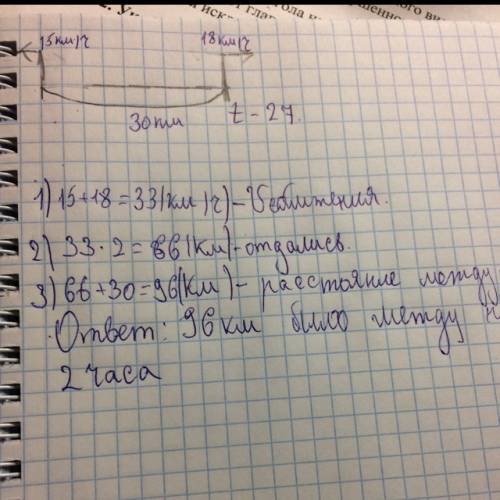 15км/ч 18км/ч
30км t - 2ч.
1) 15+18=33(км/ч) - Vсближения.
2) 33·2=66(км) - отдались.
3) 66+30=96(км) - расстояние между
Ответ: 96км было между
2 часа